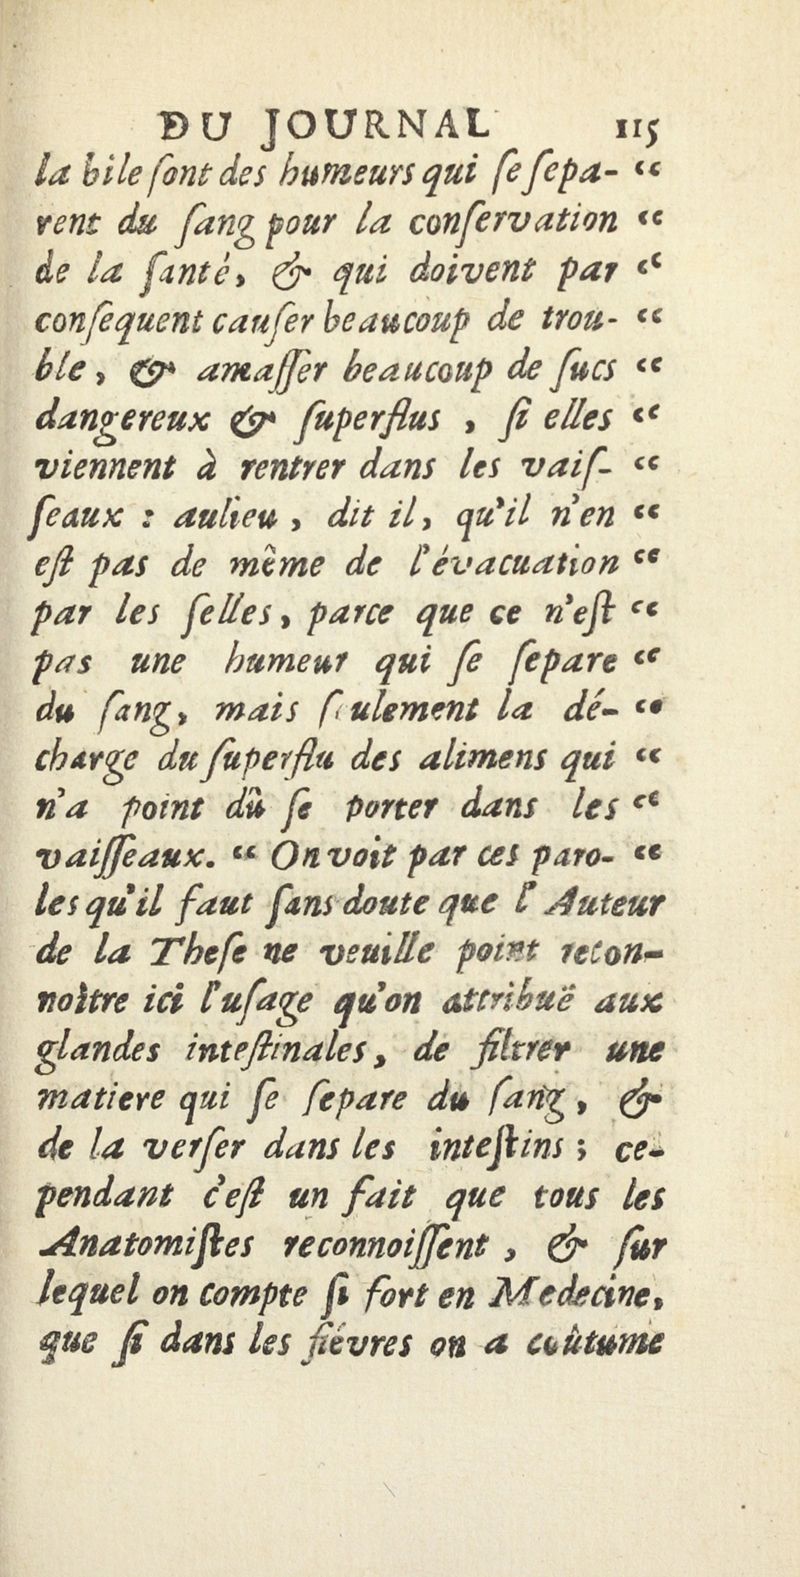 DU JOURNAL 115
la bile ſont des humeurs qui ſe ſepa- “
rent du ſang pour la conſervation “
de la ſanté, & qui doivent par “
conſequent cauſer beaucoup de trou- “
ble, & amaſſer beaucoup de ſucs “
dangereux & ſuperflus , ſi elles “
viennent à rentrer dans les vaiſ- “
ſeaux : aulieu , dit il, qu'il n'en “
eſt pas de même de l'évacuation “
par les ſelles, parce que ce n'eſt “
pas une humeur qui ſe ſepare “
du ſang, mais ſeulement la dé- “
charge du ſuperflu des alimens qui “
n'a point dû ſe porter dans les “
vaiſſeaux. “ On voit par ces paro- “
les qu'il faut ſans doute que l'Auteur
de la Theſe ne veuille point recon-
noître ici l'uſage qu'on attribuë aux
glandes inteſtinales, de filtrer une
matiere qui ſe ſepare du ſang, &
de la verſer dans les inteſtins ; ce-
pendant c'eſt un fait que tous les
Anatomiſtes reconnoiſſent , & ſur
lequel on compte ſi fort en Medecine,
que ſi dans les fiévres on a coûtume